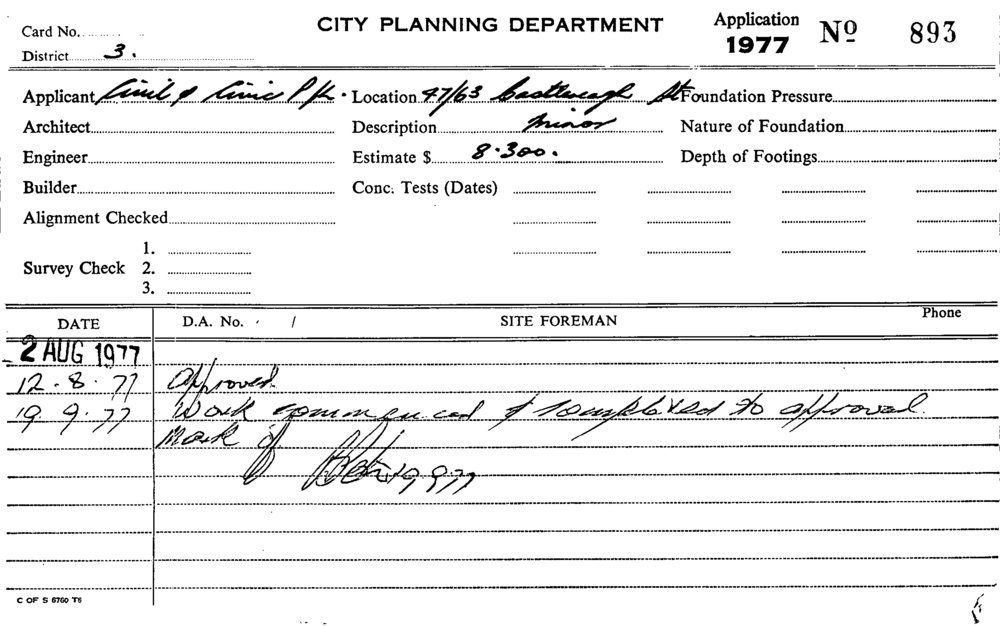 Card No.
CITY PLANNING DEPARTMENT
Application 1977 Nº 893
District 3.
Applicant Civil & Civic P/L. Location 47/63 Castlereagh St Foundation Pressure
Architect Description Minor Nature of Foundation
Engineer Estimate $ 8.300. Depth of Footings
Builder Conc. Tests (Dates)
Alignment Checked
Survey Check 1. 2. 3.
DATE D.A. No. / SITE FOREMAN Phone
2 AUG 1977
12.8.77 Approved.
19.9.77 Work commenced & completed to approval.
Mark off
19.9.77
C OF S 6760 T6